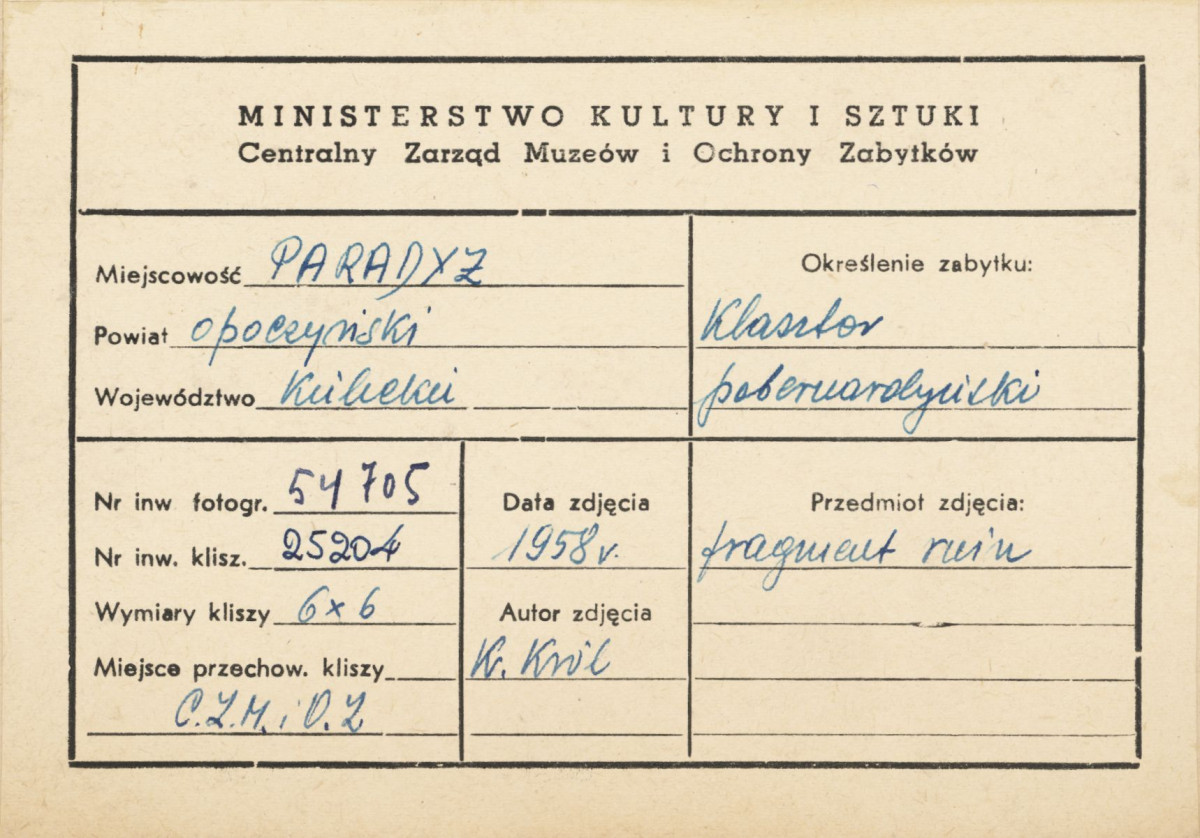 MINISTERSTWO KULTURY I SZTUKI
Centralny Zarząd Muzeów i Ochrony Zabytków
Miejscowość PARADYZ
Powiat opoczyński
Województwo Kielecki
Określenie zabytku:
Klasztor
pobernardyński
Nr inw fotogr. 54705
Nr inw. klisz. 25204
Wymiary kliszy 6x6
Miejsce przechow. kliszy
C.Z.M. i O.Z
Data zdjęcia
1958 r.
Autor zdjęcia
K. Król
Przedmiot zdjęcia:
fragment ruin